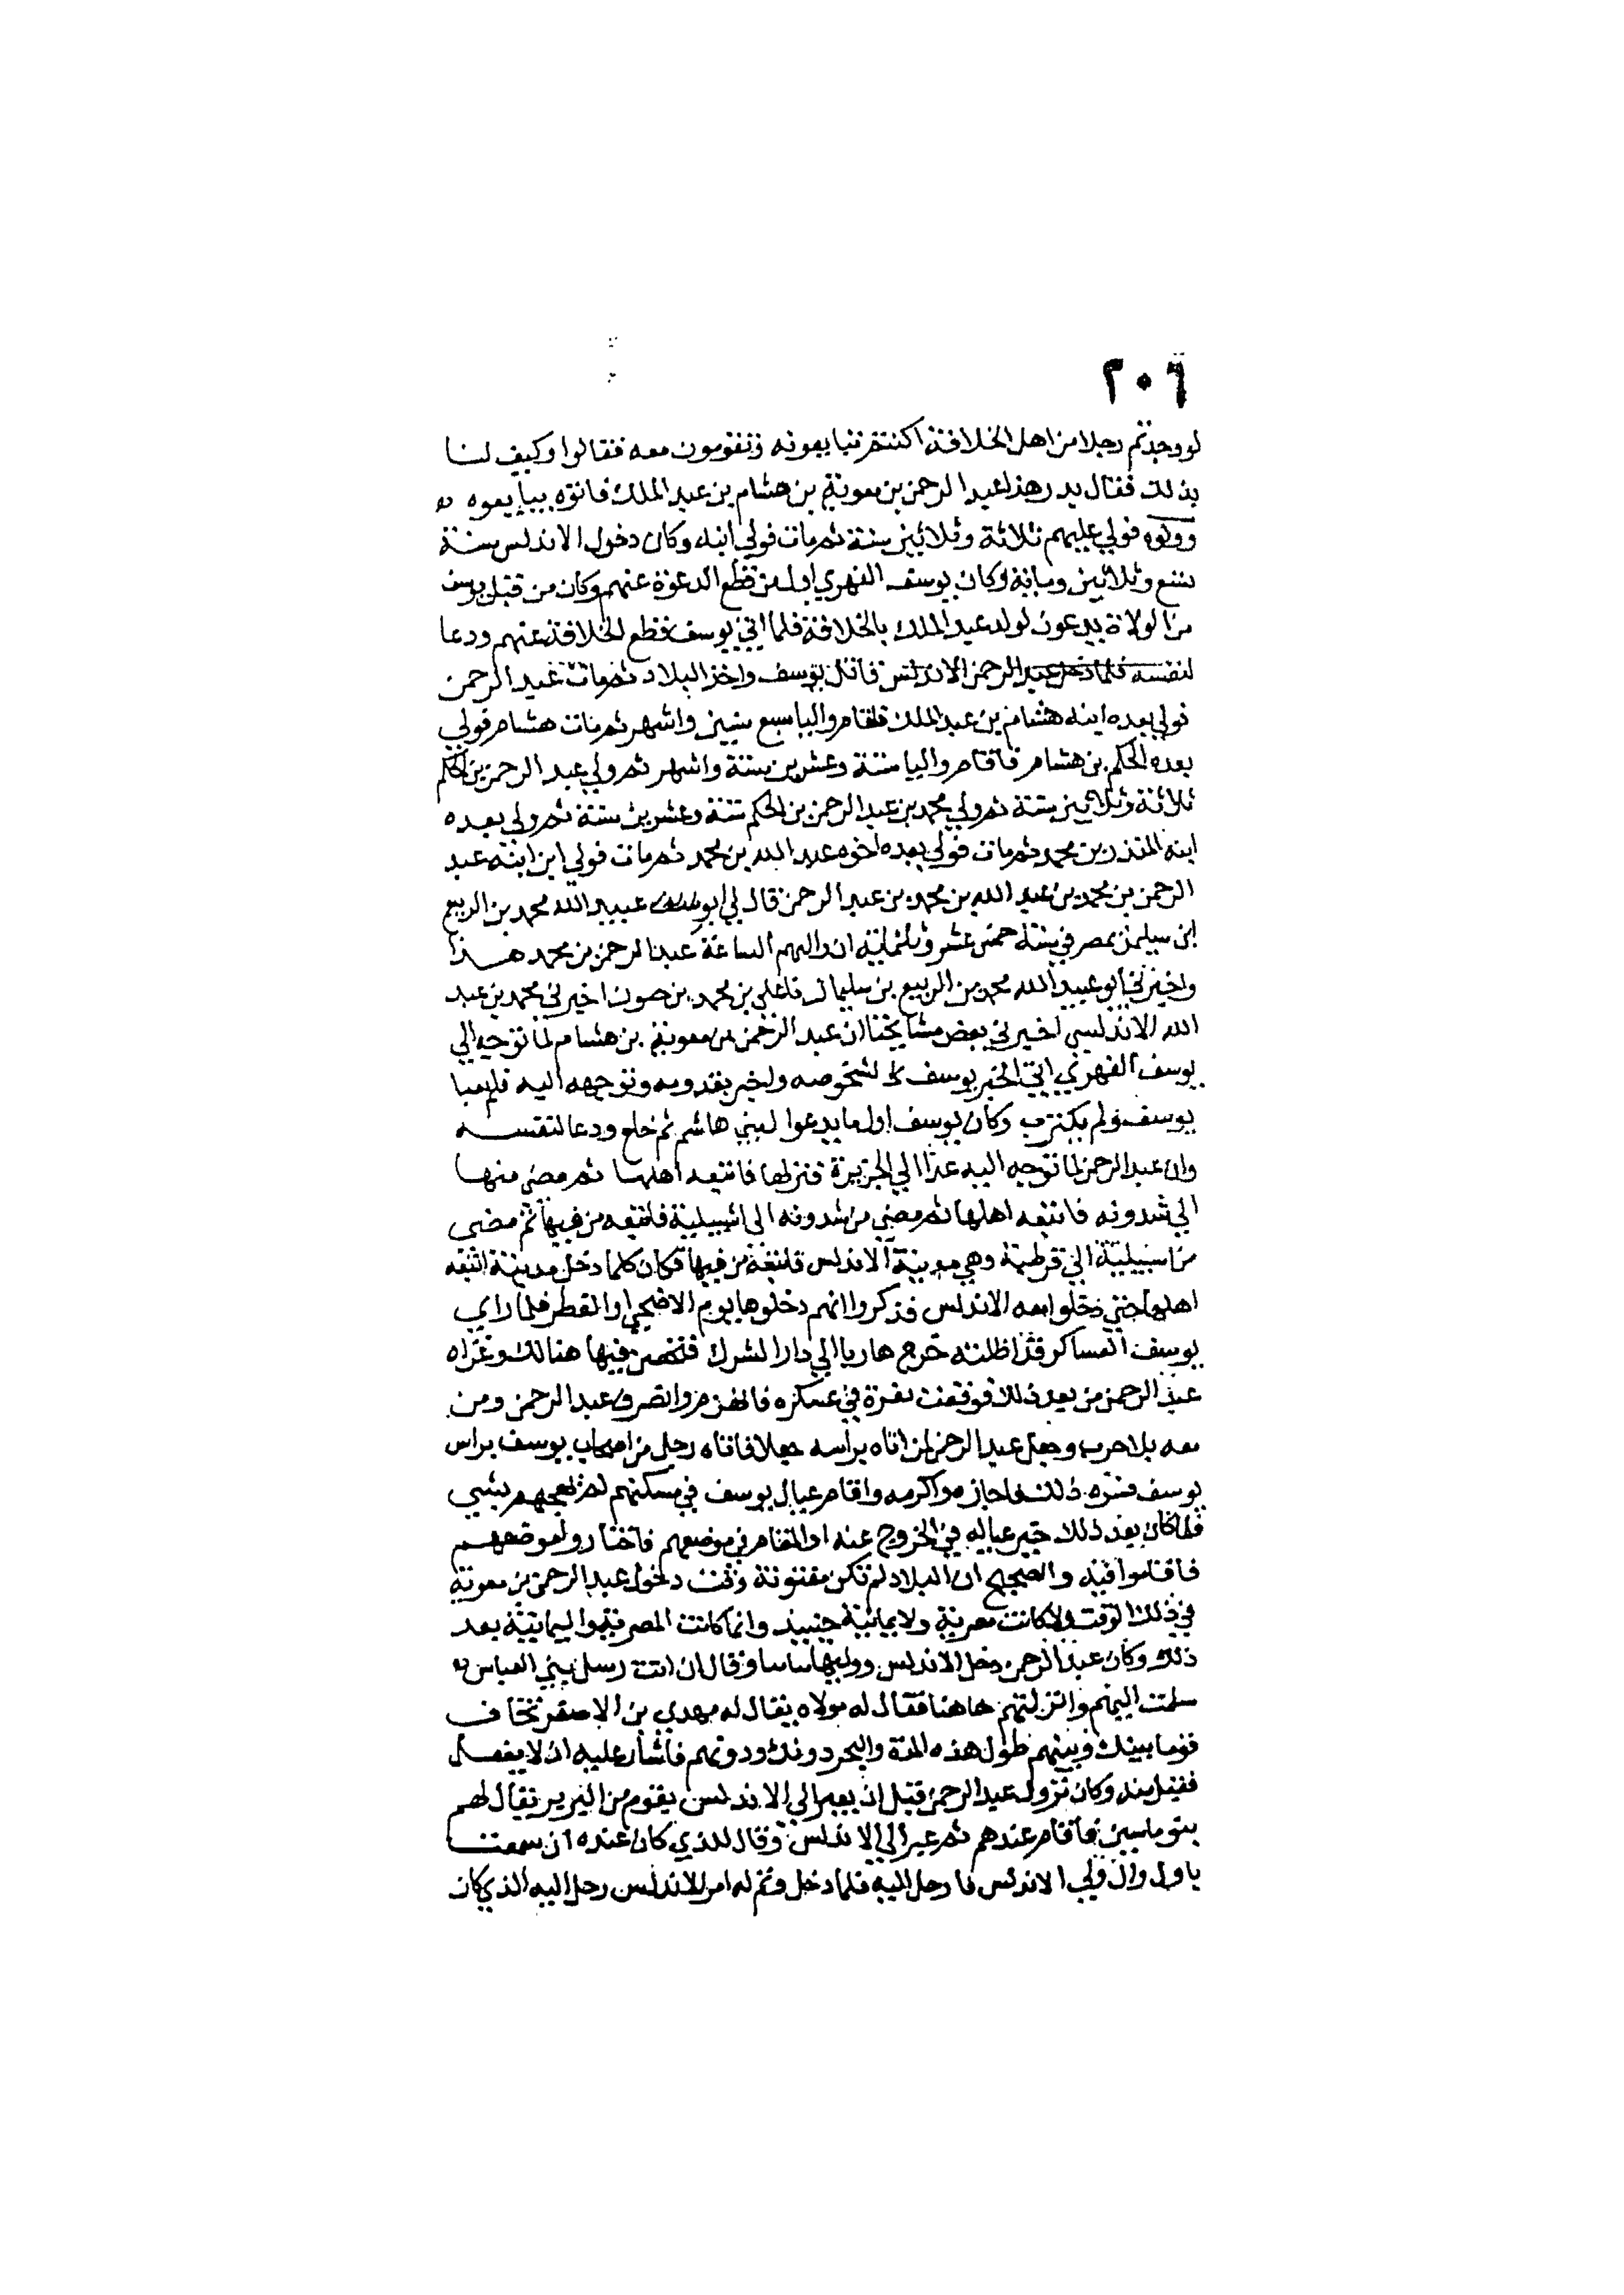 ٢٠٦
لو وجدتم رجلا من اهل الخلافة اكنتم تبايعونه وتقومون معه فقالوا وكيف لنا
بذلك فقال بدر هذا عبد الرحمن بن معوية بن هشام بن عبد الملك فاتوه يبايعوه
وولوه فولي عليهم ثلاثة وثلاثين سنة ثم مات فولي ابنه وكان دخول الاندلس سنة
تسع وثلاثين وماية وكان يوسف الفهري اول من قطع الدعوة عنهم وكان من قبل يوسف
من الولاة يدعون لولد عبد الملك بالخلافة فلما اتي يوسف قطع الخلافة عنهم ودعا
لنفسه فلما دخل عبد الرحمن الاندلس قاتل يوسف واخذ البلاد ثم مات عبد الرحمن
فولي بعده ابنه هشام بن عبد الملك فاقام واليا سبع سنين واشهر ثم مات هشام فولي
بعده الحكم بن هشام فاقام واليا ستة وعشرين سنة واشهر ثم ولي عبد الرحمن بن الحكم
ثلاثة وثلاثين سنة ثم ولي محمد بن عبد الرحمن بن الحكم ستة وعشرين سنة ثم ولي بعده
ابنه المنذر بن محمد ثم مات فولي بعده اخوه عبد الله بن محمد ثم مات فولي ابن ابنه عبد
الرحمن بن محمد بن عبد الله بن محمد بن عبد الرحمن قال لي ابو عبيد الله محمد بن الربيع
ابن سليمن بمصر في سنة خمس عشر وثلثماية ان واليهم الساعة عبد الرحمن بن محمد هذا
واخبرني ابو عبيد الله محمد بن الربيع بن سليمان نا علي بن محمد بن حيون اخبرني محمد بن عبد
الله الاندلسي اخبرني بعض مشايخنا ان عبد الرحمن بن معوية بن هشام لما توجه الي
يوسف الفهري اتي الخبر يوسف لشخوصه واخبر بقدومه وتوجهه اليه فلم يعبا
يوسف ولم يكترث وكان يوسف اول ما يدعوا لبني هاشم ثم خلع ودعا لنفسه
وان عبد الرحمن لما توجه اليه عدا الي الجزيرة فنزلها فاتبعه اهلها ثم مضي منها
الي شدونه فاتبعه اهلها ثم مضي من شدونه الي اشبيلية فاتبعه من فيها ثم مضي
من اشبيلية الي قرطبة وهي مدينة الاندلس فاتبعه من فيها فكان كلما دخل مدينة اتبعه
اهلها حتي دخلوا معه الاندلس فذكروا انهم دخلوها يوم الاضحي او الفطر فلما راي
يوسف العساكر قد اظلته خرج هاربا الي دار الشرك فتحصن فيها هنالك وغزاه
عبد الرحمن من بعد ذلك فوقعت نفرة في عسكره فانهزم وانصرف عبد الرحمن ومن
معه بلا حرب وجعل عبد الرحمن لمن اتاه براسه جعلا فاتاه رجل من اصحاب يوسف براس
يوسف فسره ذلك فاجازه واكرمه واقام عيال يوسف في مسكنهم لم يهجهم بشي
فلما كان بعد ذلك خير عياله في الخروج عنه او المقام في موضعهم فاختاروا موضعهم
فاقاموا فيه والصحيح ان البلاد لم تكن مفتونة وقت دخول عبد الرحمن بن معوية
في ذلك الوقت ولا كانت مضرية ولا يمانية حينيذ وانما كانت المضرية واليمانية بعد
ذلك وكان عبد الرحمن دخل الاندلس ووليها وقال ان اتت رسل بني العباس
سلمت اليهم وانزلتهم هاهنا فقال له مولاه يقال له مهدي بن الاصفر تخاف
قوما بينك وبينهم طول هذه المدة والبحر دونك ودونهم فاشار عليه ان لا يفعل
فقبل منه وكان نزول عبد الرحمن قبل ان يعبر الي الاندلس بقوم من البربر يقال لهم
بنو ماسين فاقام عندهم ثم عبر الي الاندلس وقال للذي كان عنده ان سمعت
باول وال ولي الاندلس فارحل اليه فلما دخل وتم له امر الاندلس رحل اليه الذي كان